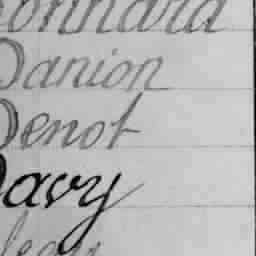 onnard
Danion
Denot
Davy